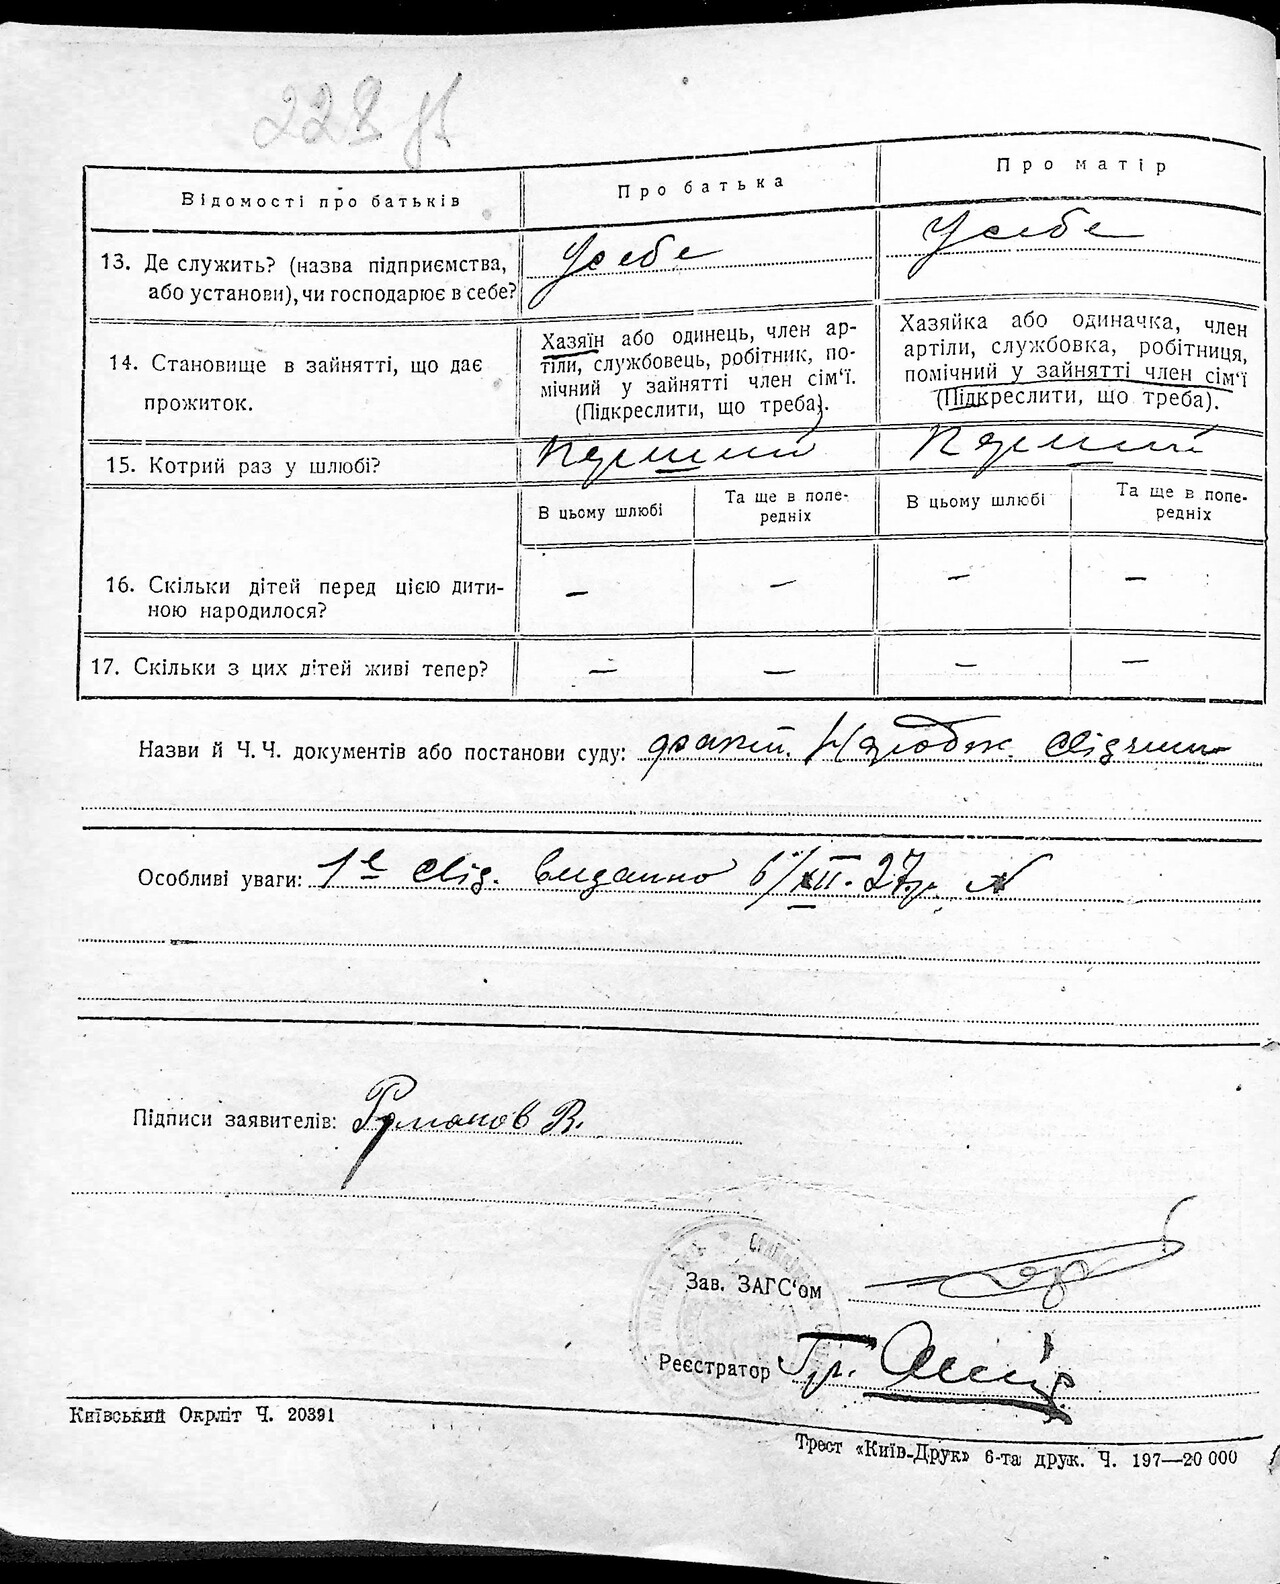 228
Відомості про батьків
Про батька
Про матір
13. Де служить? (назва підприємства,
або установи), чи господарює в себе?
У себе
У себе
14. Становище в зайнятті, що дає
прожиток.
Хазяїн або одинець, член ар-
тіли, службовець, робітник, по-
мічний у зайнятті член сім'ї.
(Підкреслити, що треба).
Хазяйка або одиначка, член
артіли, службовка, робітниця,
помічний у зайнятті член сім'ї
(Підкреслити, що треба).
15. Котрий раз у шлюбі?
Перший
Перший
В цьому шлюбі
Та ще в попе-
редніх
В цьому шлюбі
Та ще в попе-
редніх
16. Скільки дітей перед цією дити-
ною народилося?
— — — —
17. Скільки з цих дітей живі тепер?
— — — —
Назви й Ч. Ч. документів або постанови суду:
Особливі уваги: 1е свід. видано 6/XII-27р.
Підписи заявителів: Романов В.
Зав. ЗАГС'ом
Реєстратор Гр.
Київський Окрліт Ч. 20391
Трест «Київ-Друк» 6-та друк. Ч. 197—20 000